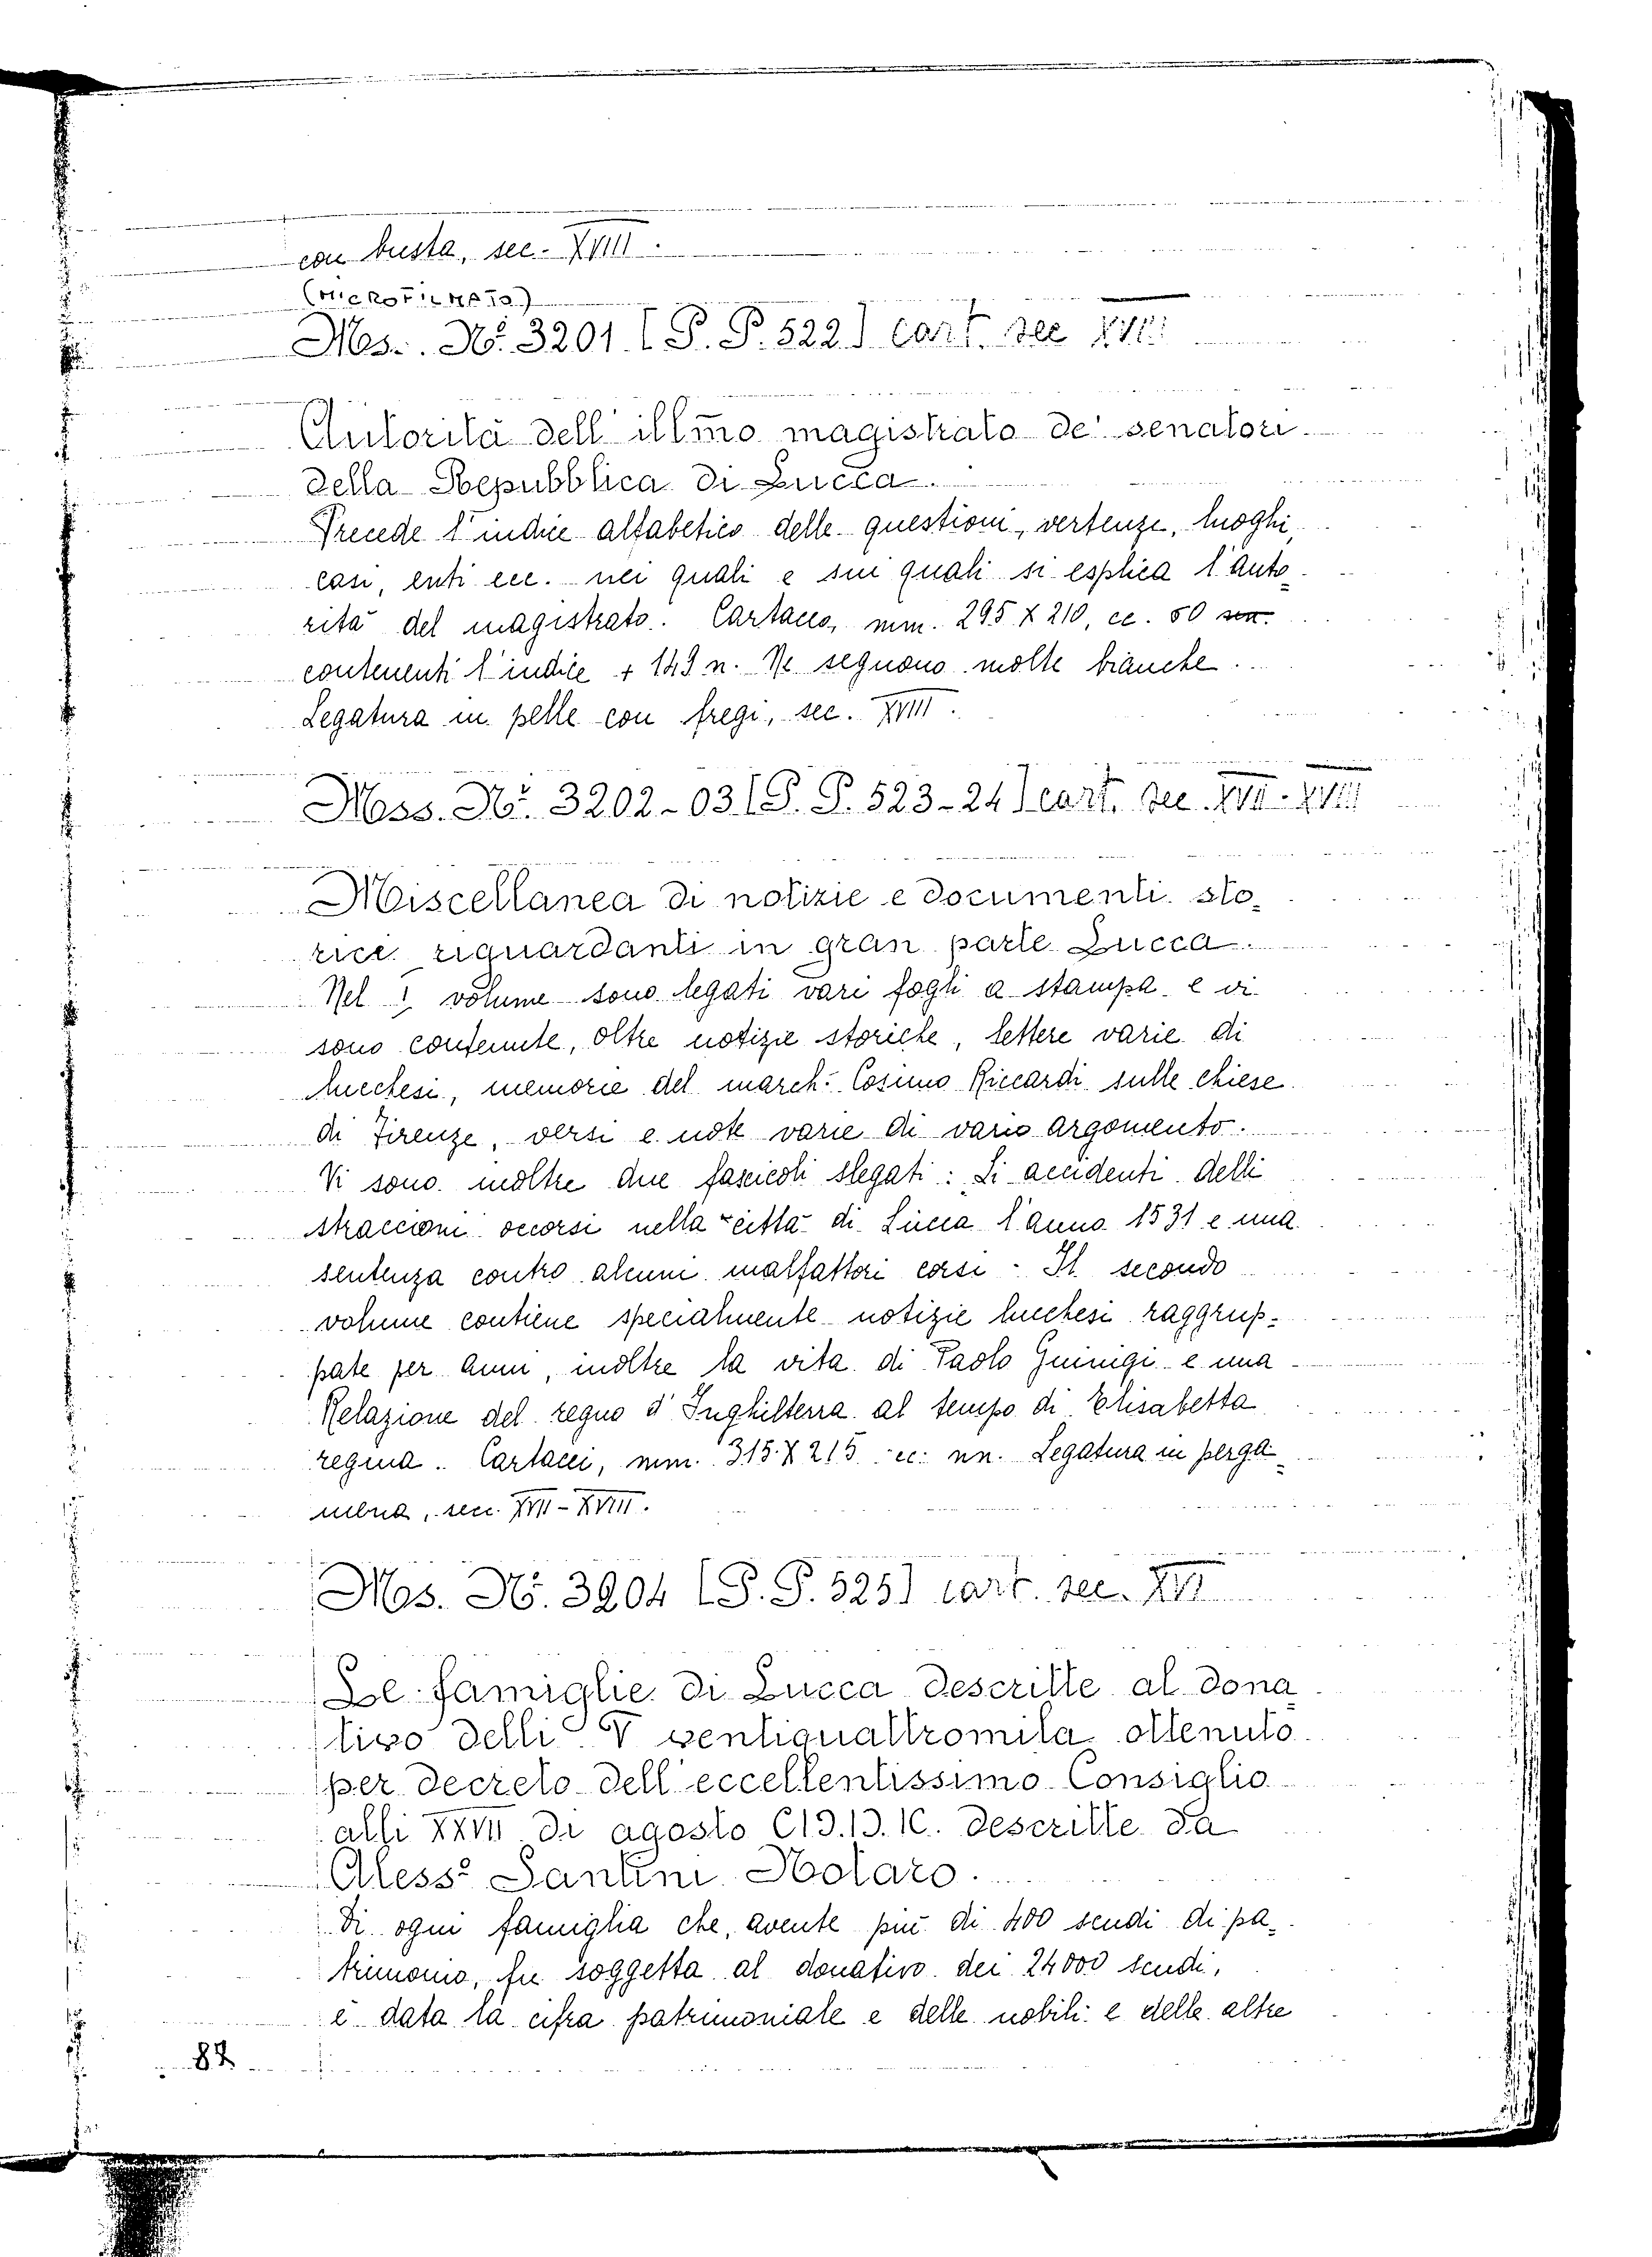 con busta, sec. XVIII.
(MICROFILMATO)
Ms. N.° 3201 [P. P. 522] cart. sec XVII
Autorità dell' illm̃o magistrato de' senatori
della Repubblica di Lucca.
Precede l'indice alfabetico delle questioni, vertenze, luoghi,
casi, enti ecc. nei quali e sui quali si esplica l'auto-
rità del magistrato. Cartaceo, mm. 295 X 210, cc. 50
contenenti l'indice + 149 n. Ne seguono molte bianche.
Legatura in pelle con fregi, sec. XVIII.
Mss. N.i 3202-03 [P. P. 523-24] cart. sec. XVII-XVIII
Miscellanea di notizie e documenti sto-
rici riguardanti in gran parte Lucca.
Nel I volume sono legati vari fogli a stampa e vi
sono contenute, oltre notizie storiche, lettere varie di
lucchesi, memorie del march. Cosimo Riccardi sulle chiese
di Firenze, versi e note varie di vario argomento.
Vi sono inoltre due fascicoli slegati: Li accidenti delli
straccioni occorsi nella città di Lucca l'anno 1531 e una
sentenza contro alcuni malfattori corsi - Il secondo
volume contiene specialmente notizie lucchesi raggrup-
pate per anni, inoltre la vita di Paolo Guinigi e una
Relazione del regno d'Inghilterra al tempo di Elisabetta
regina. Cartacei, mm. 315 X 215 cc. nn. Legatura in perga-
mena, secc. XVII-XVIII.
Ms. N.° 3204 [P. P. 525] cart. sec. XVI
Le famiglie di Lucca descritte al dona-
tivo delli V ventiquattromila ottenuto
per decreto dell'eccellentissimo Consiglio
alli XXVII di agosto CIƆ.IƆ.IC. descritte da
Aless° Santini Notaro.
Di ogni famiglia che, avente più di 400 scudi di pa-
trimonio, fu soggetta al donativo dei 24000 scudi,
è data la cifra patrimoniale e delle nobili e delle altre
82